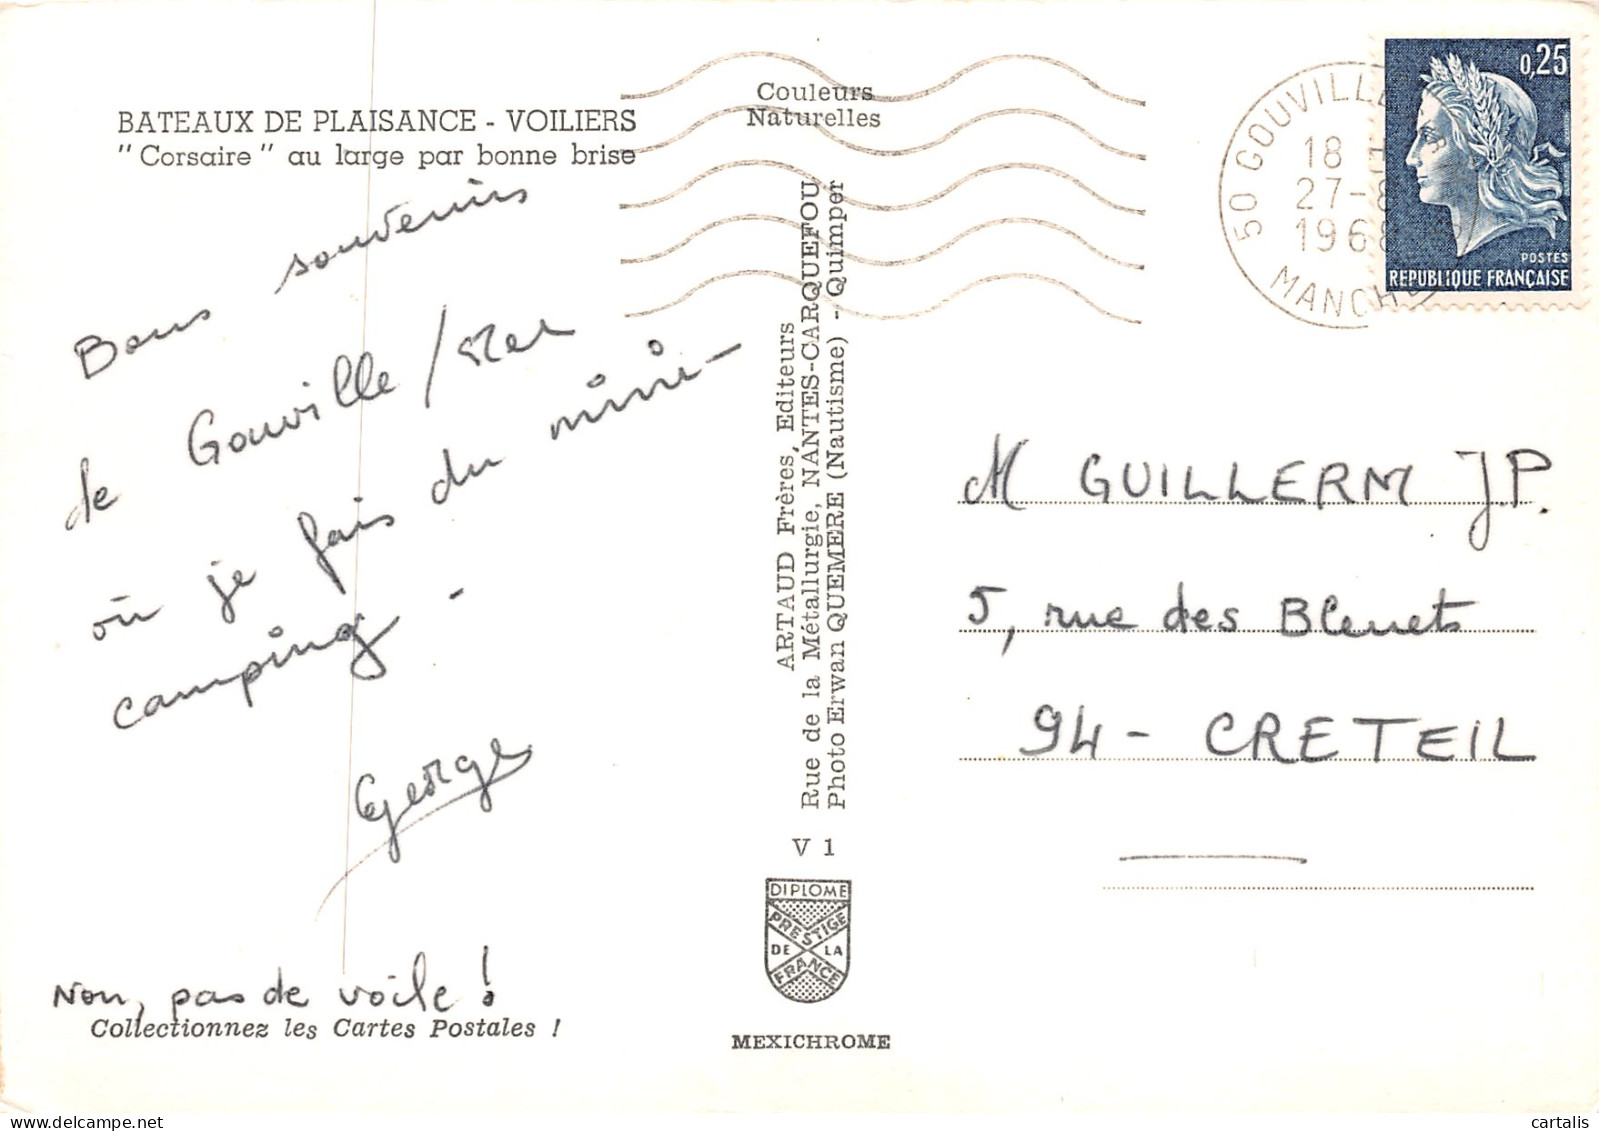 BATEAUX DE PLAISANCE - VOILIERS
" Corsaire " au large par bonne brise
Bons souvenirs
de Gouville / Mer
où je fais du mini-
camping -
George
Non, pas de voile !
Collectionnez les Cartes Postales !
Couleurs
Naturelles
ARTAUD Frères, Editeurs
Rue de la Métallurgie, NANTES-CARQUEFOU
Photo Erwan QUEMERE (Nautisme) - Quimper
V 1
DIPLOME
PRESTIGE
DE LA
FRANCE
MEXICHROME
50 GOUVILLE
18 H
27-8
1968
MANCHE
0,25
POSTES
REPUBLIQUE FRANÇAISE
M GUILLERM JP.
5, rue des Bleuets
94 - CRETEIL
cartalis